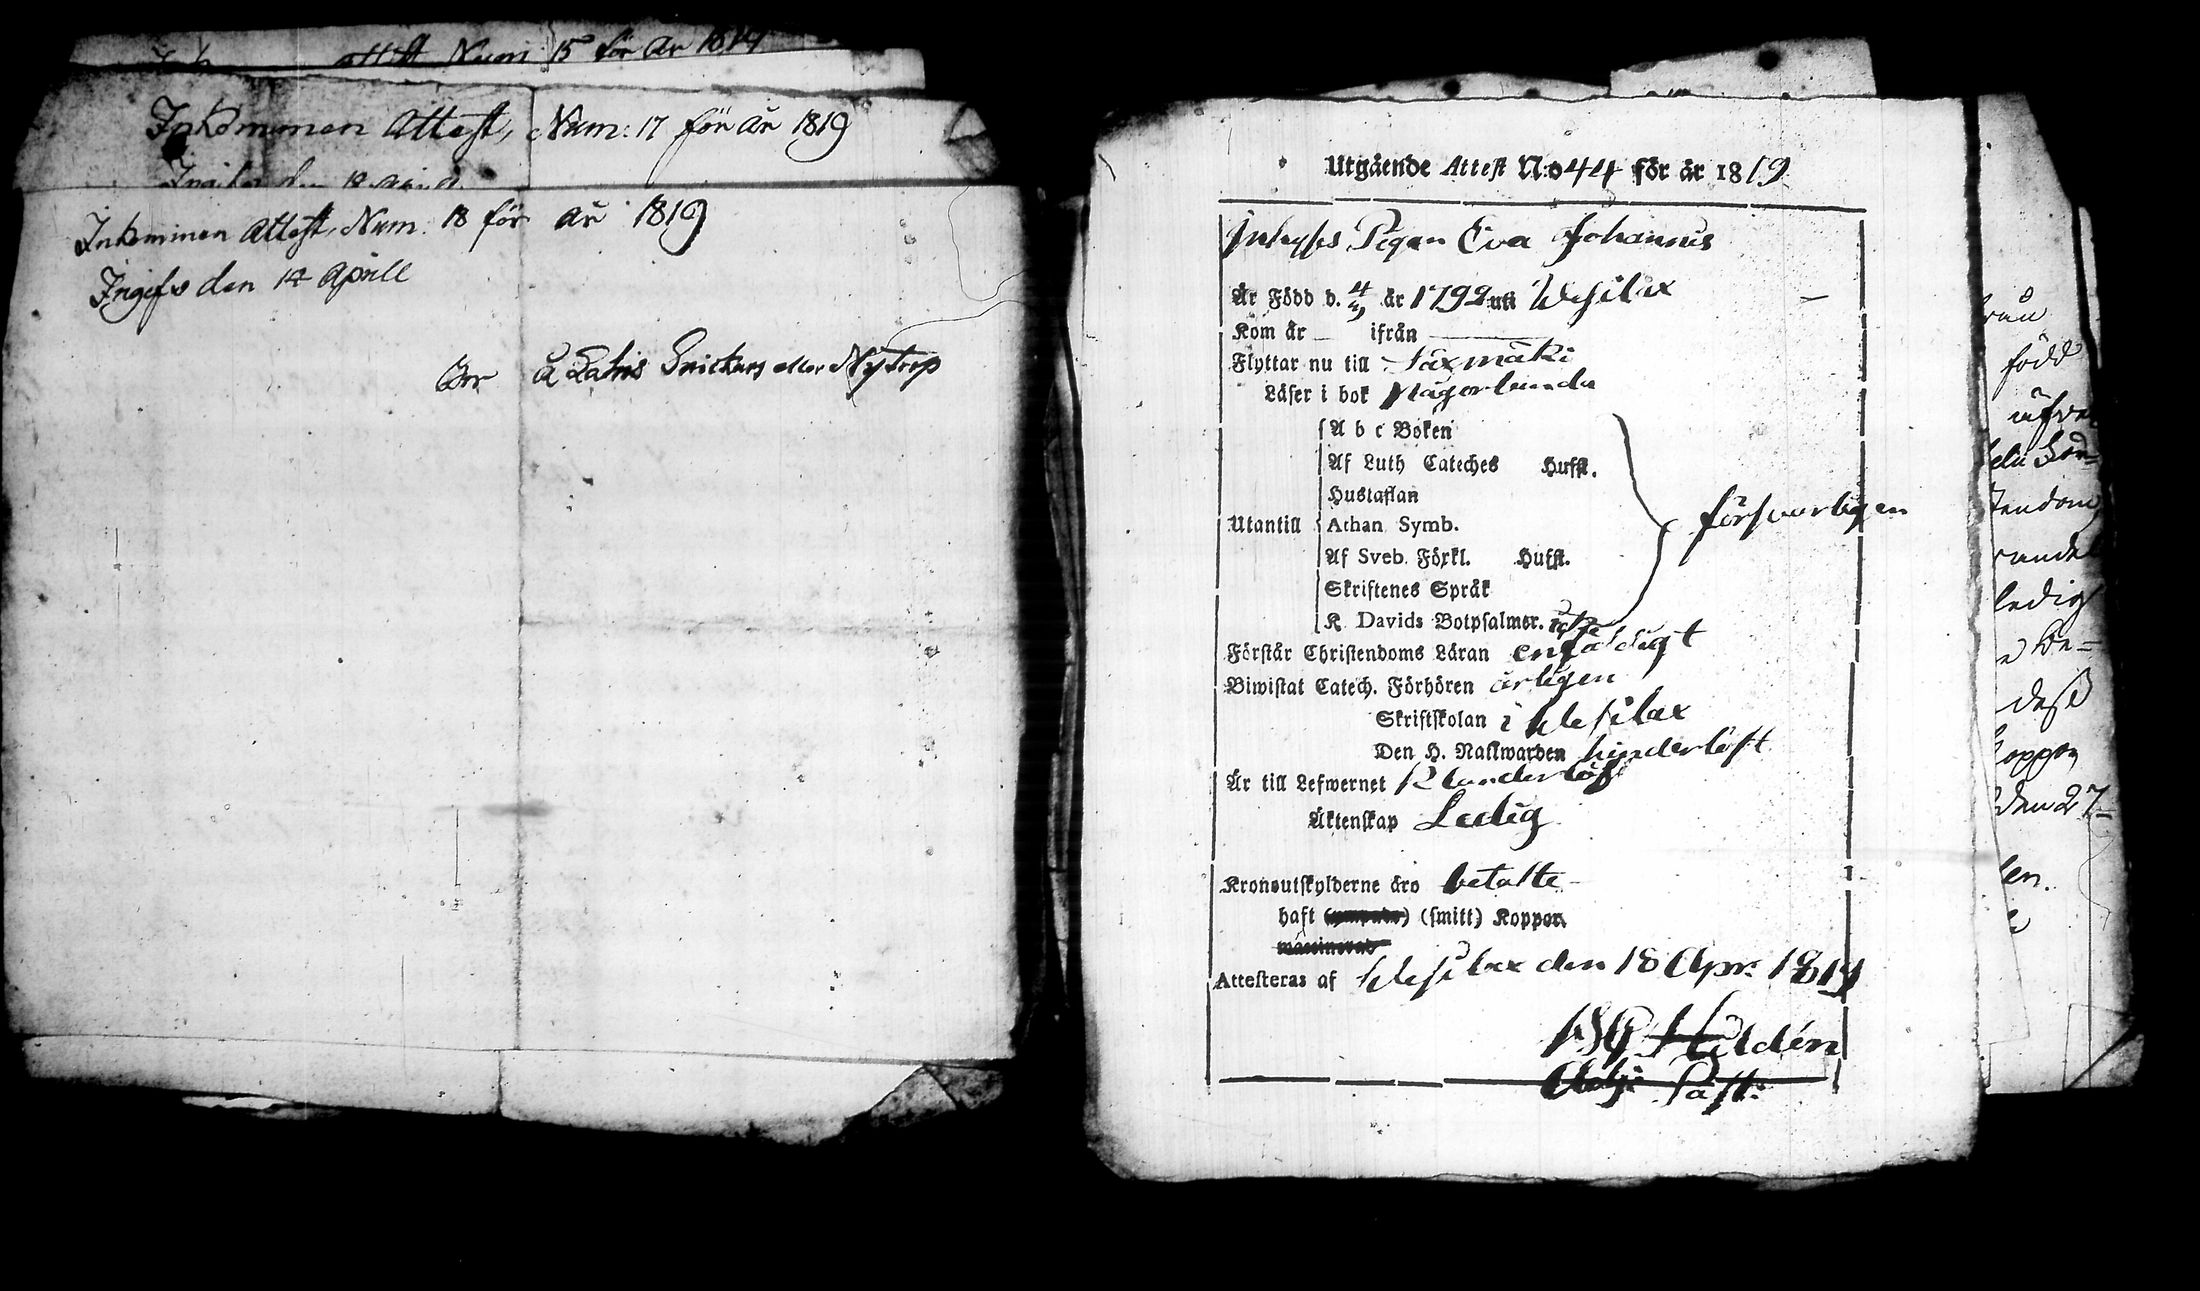 attest Num: 15 för år 1819
Inkommen Attest, Num: 17 för år 1819
Ingifs den
Inkommen Attest, Num. 18 för år 1819
Ingifs den 14 Aprill
Bor å Latris Snickars eller Nytorp
Utgående Attest N:o 44 för år 1819
Inhyses Pigan Eva Johannis
Är Född d. år 1792 uti Wesilax
Kom år _ ifrån
Flyttar nu till Säxmäki
Läser i bok Någorlunda
A b c Boken
Af Luth Cateches Hufst.
Hustaflan
Utantill Athan Symb. försvarligen
Af Sveb. Förkl. Hufst.
Skriftenes Språk
K Davids Botpsalmer.
Förstår Christendoms Läran enfaldigt
Biwistat Catech. Förhören årligen
Skriftskolan i Wesilax
Den H. Nattwarden hinderlöst
Är till Lefwernet Klanderlös
Äktenskap Ledig
Kronoutskylderne äro betalte
haft (smitt) Koppor.
Attesteras af Wesilax den 18 Apr: 1819
Hildén
Adj: Past:
född
ledig
dess
den 27